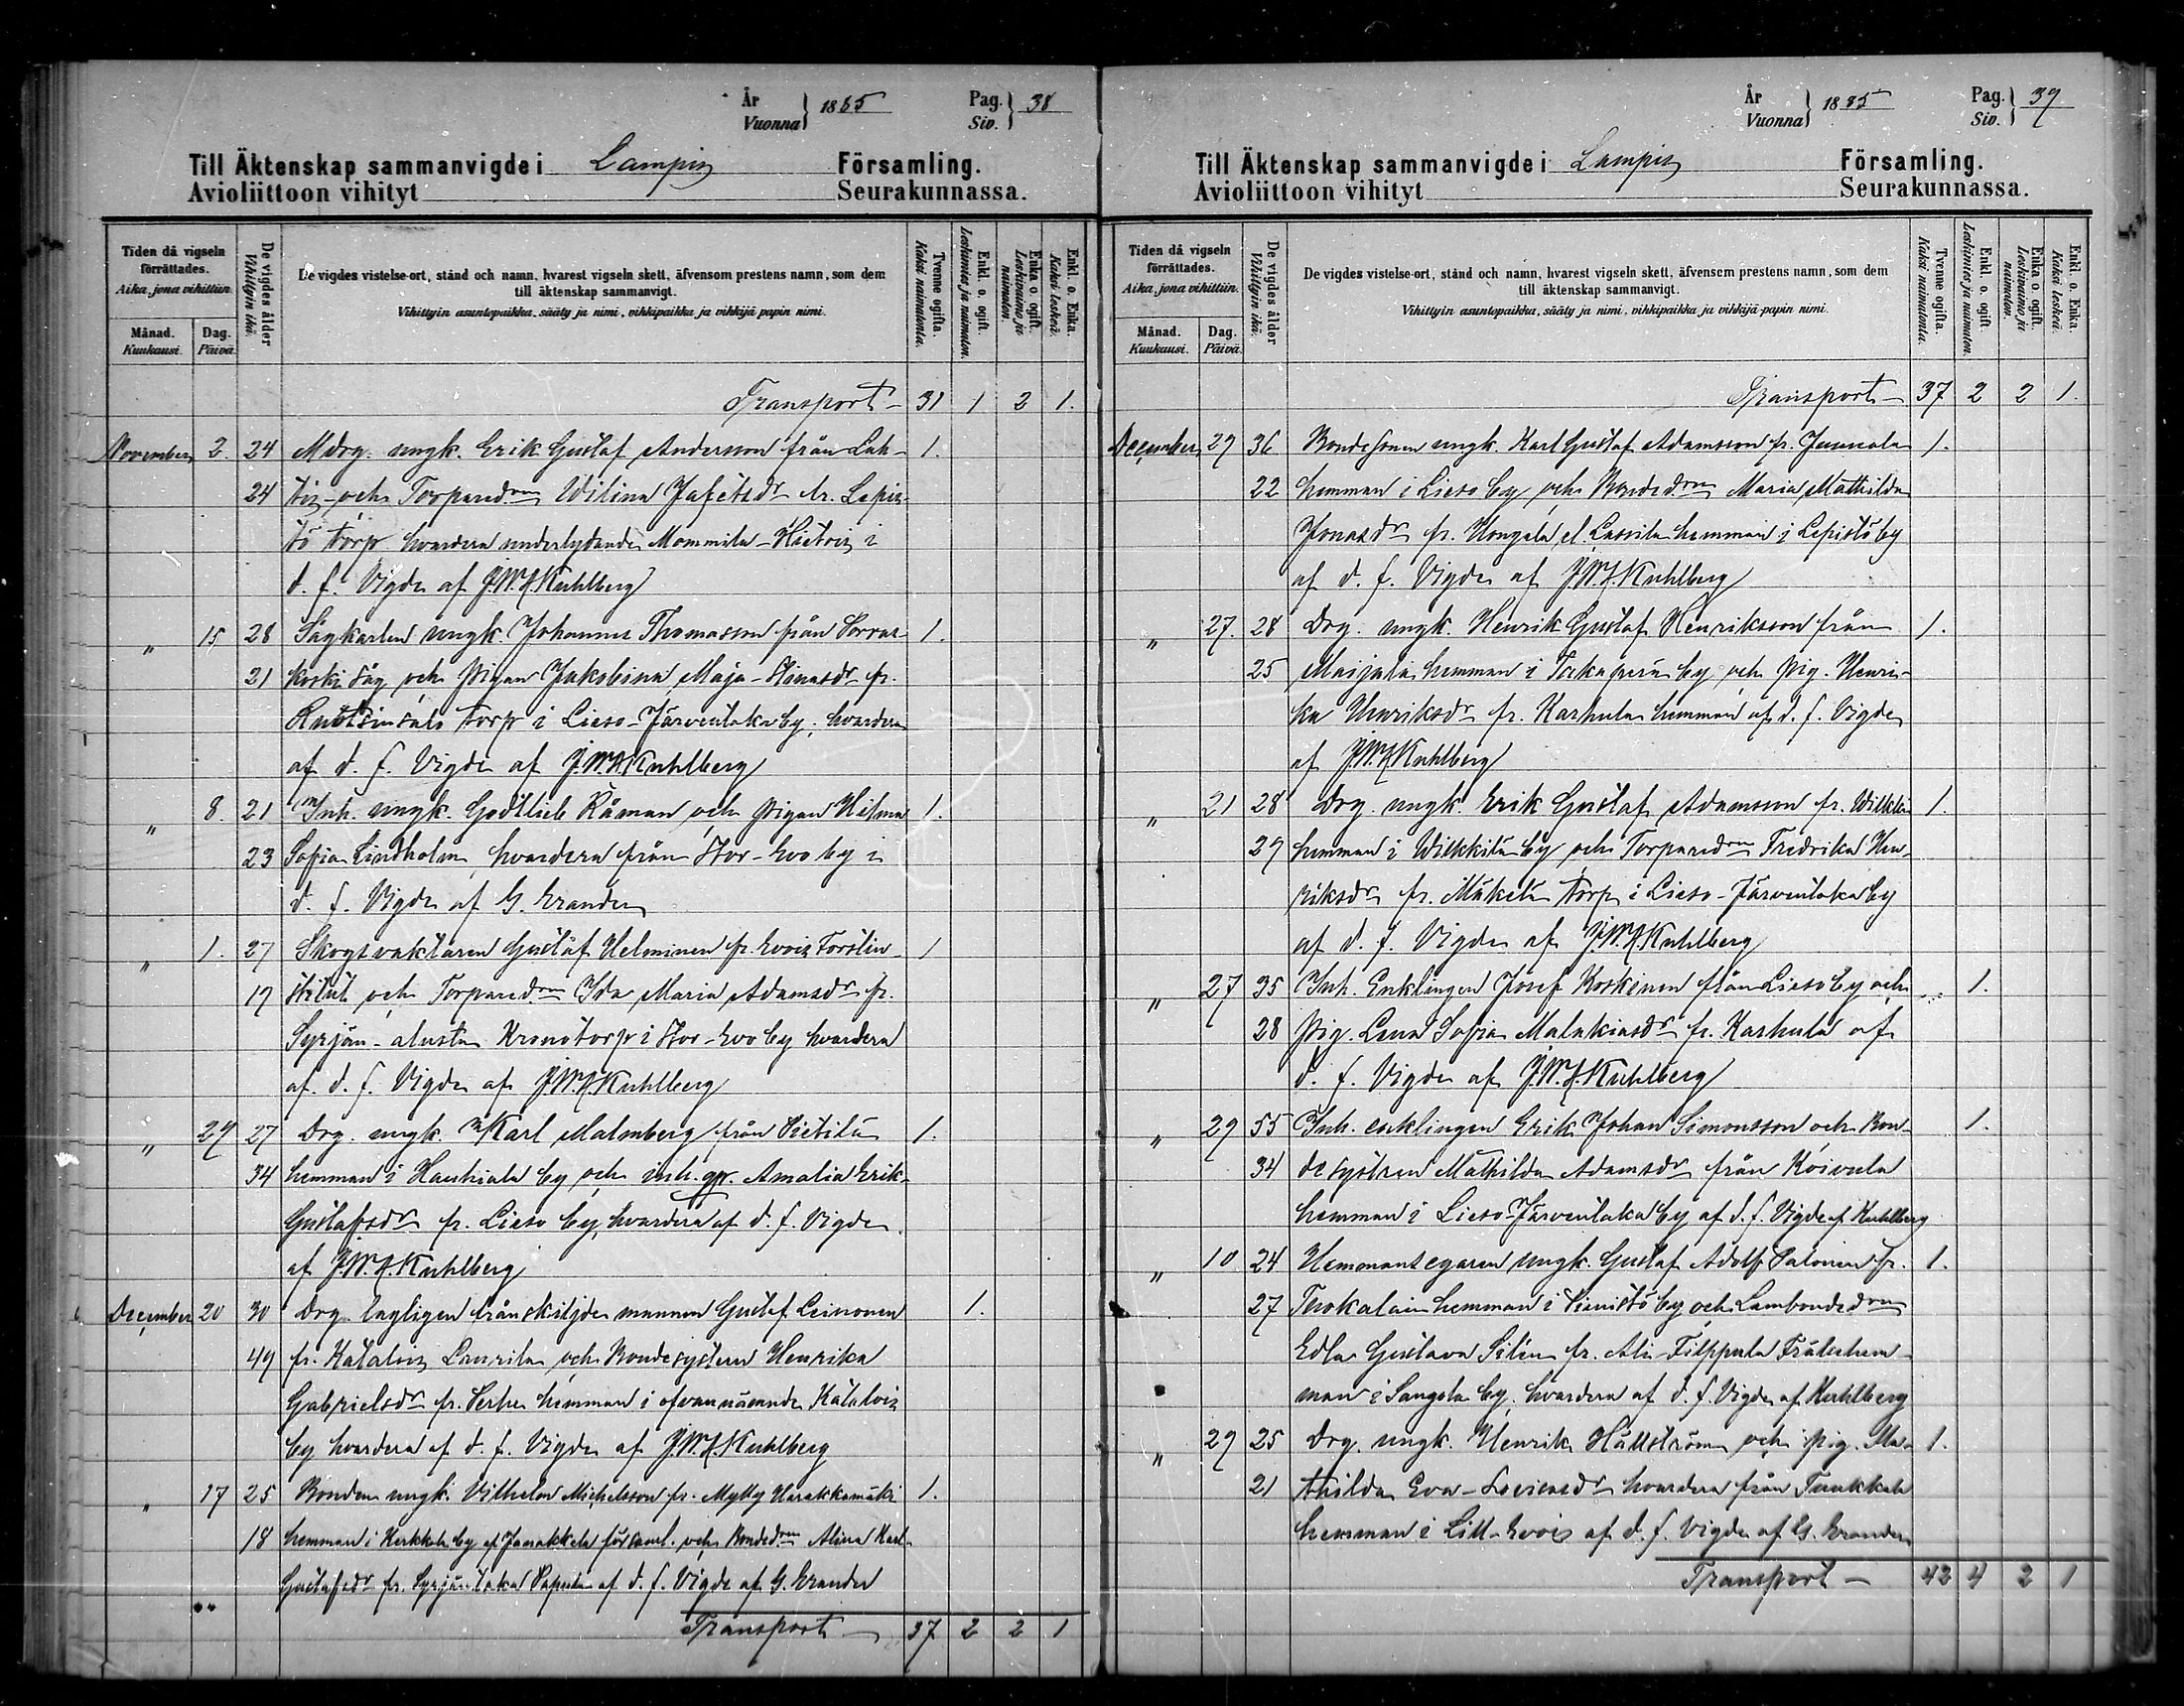 År
Vuonna } 1885 Pag.
Siv. } 38
Till Äktenskap sammanvigde i Lampis Församling.
Avioliittoon vihityt Seurakunnassa.
Tiden då vigseln förrättades.
Aika, jona vihittiin.
Månad.
Kuukausi.
Dag.
Päivä.
De vigdes ålder
Vihittyin ikä.
De vigdes vistelse-ort, stånd och namn, hvarest vigseln skett, äfvensom prestens namn, som dem
till äktenskap sammanvigt.
Vihittyin asuntopaikka, sääty ja nimi, vihkipaikka ja vihkijä papin nimi.
Tvenne ogifta.
Kaksi naimatonta.
Enkl. o. ogift.
Leskimies ja naimaton.
Enka o. ogift.
Leskivaimo ja naimaton.
Enkl. o. Enka.
Kaksi leskeä.
Transport 31 1 2 1.
November 2. 24 Mdrg. ungk. Erik Gustaf Andersson från Lah- 1.
24 tis och Torpared:n Wilina Jafetsdr fr. Lepis-
tö torp hvardera underlydande Mommila-Hietois i
d. f. Vigde af J.W.A.Kuhlberg
" 15 28 Sågkarlen ungk. Johannes Thomasson från Sorras- 1.
21 koski såg och pigan Jakobina Maja-Stinasdr fr.
torp i Lieso-Järventaka by, hvardera
af d. f. Vigde af J.W.A.Kuhlberg
" 8. 21 Inh. ungk. Godtlieb Råman och pigan Hilma 1.
23 Sofia Lindholm hvardera från Stor-Evo by i
d. f. Vigde af G. Erander
" 1. 27 Skogsvaktaren Gustaf Helminen fr. Evois Forstin- 1
19 stitut och Torpared:n Ida Maria Adamsdr fr.
Syrjän-alusta Kronotorp i Stor-Evo by hvardera
af d. f. Vigde af J.W.A.Kuhlberg
" 29 27 Drg. ungk. Karl Malmberg från Hietilä 1.
34 hemman i Hauhiala by och inh. qp. Amalia Erik-
Gustafsdr fr. Lieso by, hvardera af d. f. Vigde
af J.W.A.Kuhlberg
December 20 30 Drg. lagligen frånskiljde mannen Gustaf Leinonen 1.
49 fr. Katalois Laurila och Bondesystern Henrika
Gabrielsdr fr. Perhe hemman i ofvannämnde Katalois
by hvardera af d. f. Vigde af J.W.A.Kuhlberg
" 17 25 Bonden ungk. Vilhelm Michelsson fr. Mylly Harakkamäki 1.
18 hemman i Kerkkola by af Janakkala församl. och Bonded:n Alina Karl-
Gustafsdr fr. Syrjäntaka af d. f. Vigde af G. Erander
Transport 37 2 2 1
År
Vuonna } 1885 Pag.
Siv. } 39
Till Äktenskap sammanvigde i Lampis Församling.
Avioliittoon vihityt Seurakunnassa.
Tiden då vigseln förrättades.
Aika, jona vihittiin.
Månad.
Kuukausi.
Dag.
Päivä.
De vigdes ålder
Vihittyin ikä.
De vigdes vistelse-ort, stånd och namn, hvarest vigseln skett, äfvensom prestens namn, som dem
till äktenskap sammanvigt.
Vihittyin asuntopaikka, sääty ja nimi, vihkipaikka ja vihkijä-papin nimi.
Tvenne ogifta.
Kaksi naimatonta.
Enkl. o. ogift
Leskimies ja naimaton.
Enka o. ogift.
Leskivaimo ja naimaton.
Enkl. o. Enka.
Kaksi leskeä.
Transport 37 2 2 1.
December 29 36 Bondesonen ungk. Karl Gustaf Adamsson fr. Juumala 1.
22 hemman i Lieso by och Bonded:n Maria Mathilda
Jonasdr fr. Uongela el. Lassila hemman i Lepistö by
af d. f. Vigde af J.W.A.Kuhlberg
" 27. 28 Drg. ungk. Henrik Gustaf Henriksson från 1.
25 Maijala hemman i Takaperä by och pig. Henri-
ka Henriksdr fr. Karhula hemman af d. f. Vigde
af J.W.A.Kuhlberg
" 21 28 Drg. ungk. Erik Gustaf Adamsson fr. Wilkkilä 1.
29 hemman i Wilkkilä by och Torpared:n Fredrika Hen-
riksdr fr. Mäkelä torp i Lieso-Järventaka by
af d. f. Vigde af J.W.A.Kuhlberg
" 27 35 Inh. Enklingen Josef Koskinen från Lieso by och 1.
28 pig. Lena Sofia Malakiasdr fr. Karhula af
d. f. Vigde af J.W.A.Kuhlberg
" 29 55 Inh. enklingen Erik Johan Simonsson och Bon- 1.
34 desystren Mathilda Adamsdr från Koivula
hemman i Lieso-Järventaka by af d. f. Vigde af Kuhlberg
" 10 24 Hemmansegaren ungk. Gustaf Adolf Salonen fr. 1.
27 Turkalain hemman i by och Lambonded:n
Edla Gustava Silén fr. Ali-Filppula Frälsehem-
man i Sangola by. hvardera af d. f. Vigde af Kuhlberg
" 29 25 Drg. ungk. Henrik Hällström och pig. Ma- 1.
21 thilda Eva-Lovisasdr hvardera från Tuukkala
hemman i Lill-Evois af d. f. Vigde af G. Erander
Transport 42 4 2 1